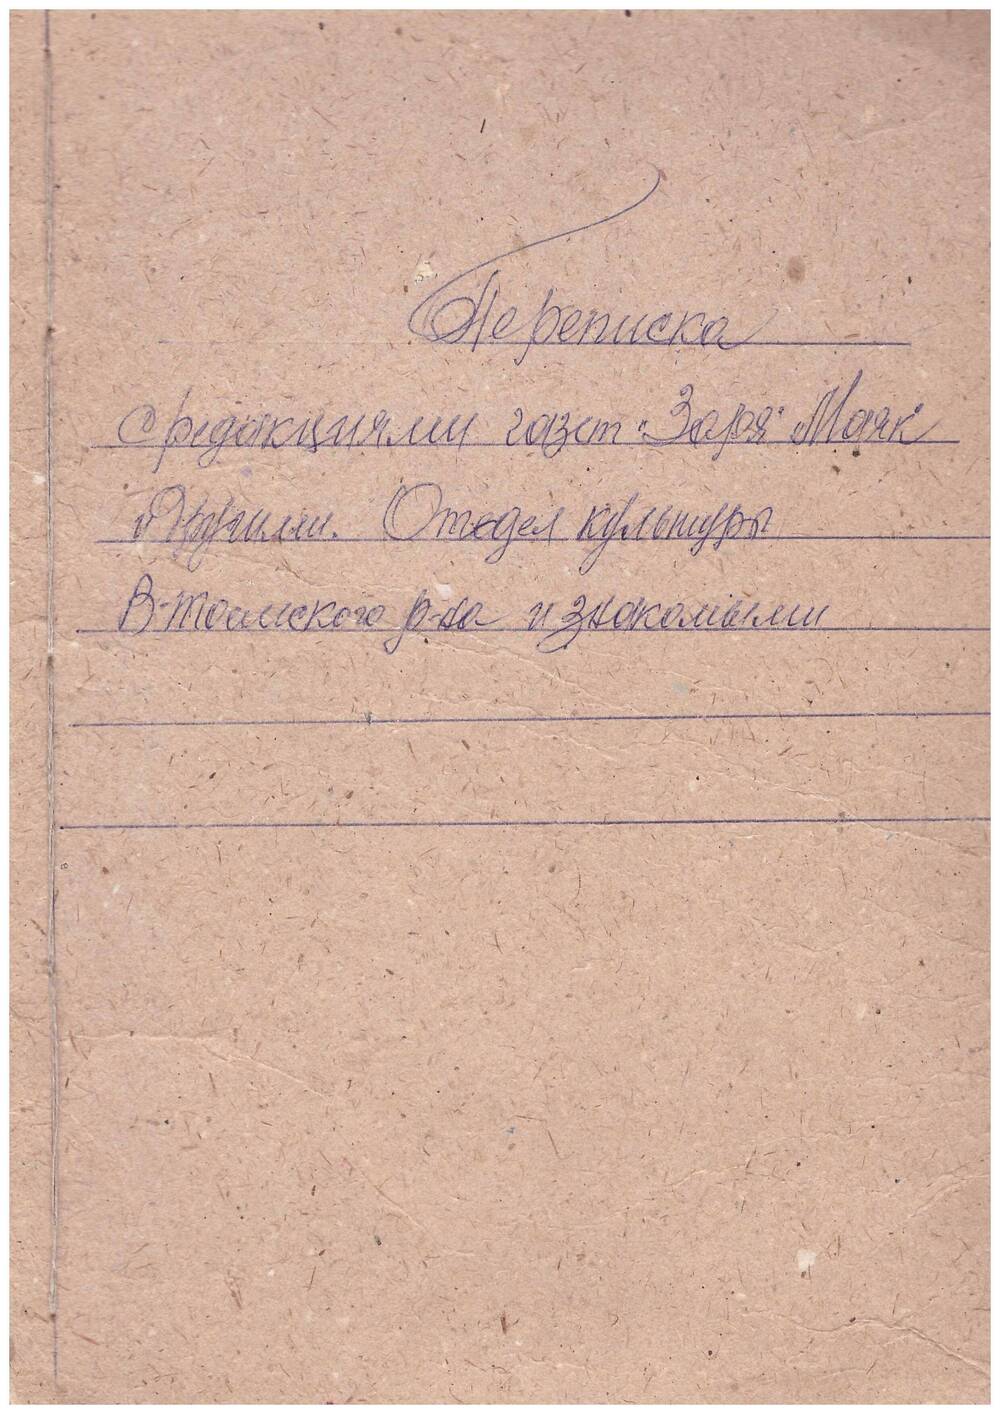 Переписка
с редакциями газет "Заря" "Маяк"
и Другими. Отдел культуры
В-Тоемского р-на и знакомыми